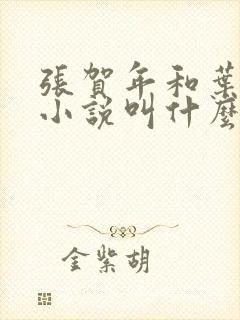 張賀年和葉
小說叫什麼
金紫胡